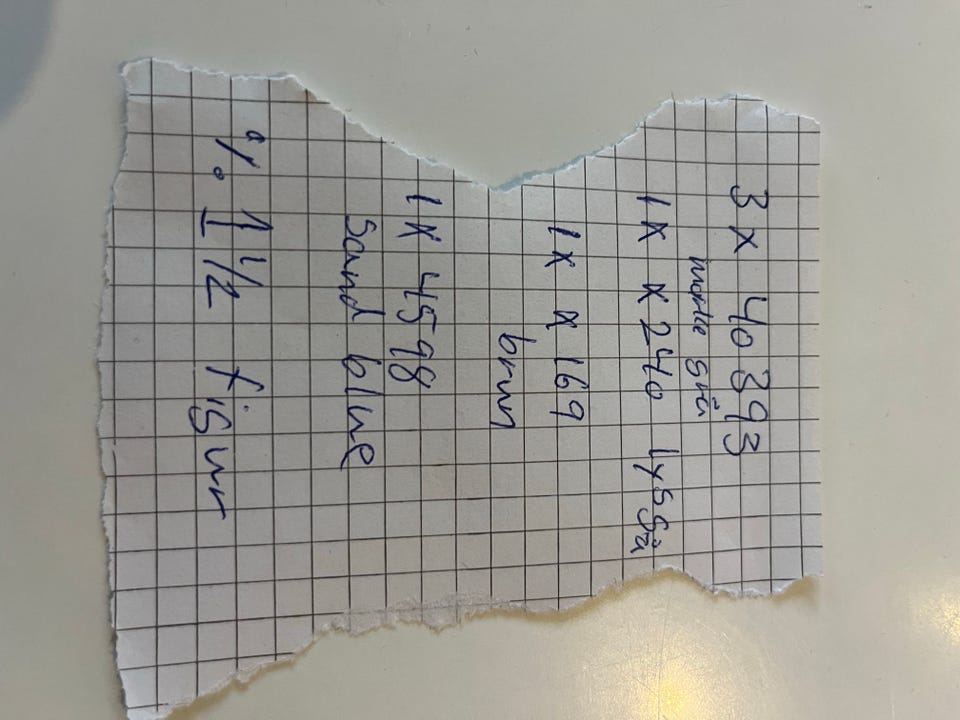 3 x 40393
mørke grå
1 x x240 lysgå
1 x x169
brun
1 x 4598
Sand blue
% 1 1/2 figur